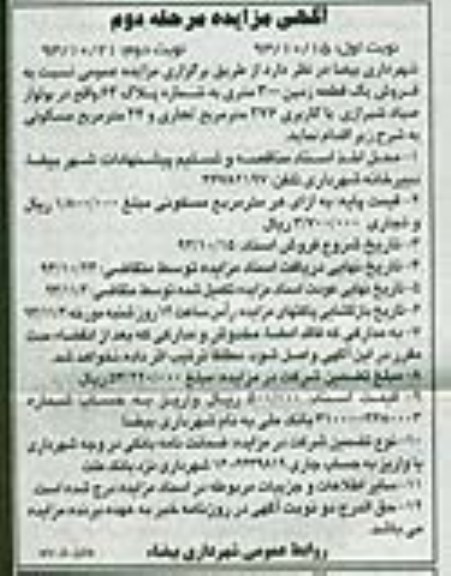 آگهی مزایده مرحله دوم
نوبت اول: ۹۳/۱۰/۱۵ نوبت دوم: ۹۳/۱۰/۲۱
شهرداری بیضا در نظر دارد از طریق برگزاری مزایده عمومی نسبت به
فروش یک قطعه زمین ۳۰۰ متری به شماره پلاک ۶۴ واقع در بولوار
صیاد شیرازی با کاربری ۲۷۶ مترمربع تجاری و ۲۴ مترمربع مسکونی
به شرح زیر اقدام نماید.
۱- محل اخذ اسناد مناقصه و تسلیم پیشنهادات شهر بیضا
دبیرخانه شهرداری تلفن:
۲- قیمت پایه: به ازای هر مترمربع مسکونی مبلغ ۱/۸۰۰/۰۰۰ ریال
و تجاری ۳/۷۰۰/۰۰۰ ریال
۳- تاریخ شروع فروش اسناد: ۹۳/۱۰/۱۵
۴- تاریخ نهایی دریافت اسناد مزایده توسط متقاضی: ۹۳/۱۰/۲۳
۵- تاریخ نهایی عودت اسناد مزایده تکمیل شده توسط متقاضی:
۶- تاریخ بازگشایی پاکتهای مزایده رأس ساعت ۱۲ روز شنبه مورخه
۷- به مدارکی که فاقد امضا، مخدوش و مدارکی که بعد از انقضاء مدت
مقرر در این آگهی واصل شود، مطلقا ترتیب اثر داده نخواهد شد.
۸- مبلغ تضمین شرکت در مزایده: مبلغ ۵۳/۲۲۰/۰۰۰ ریال
۹- قیمت اسناد: ۵۰۰/۰۰۰ ریال واریز به حساب شماره
بانک ملی به نام شهرداری بیضا
۱۰- نوع تضمین شرکت در مزایده: ضمانت نامه بانکی در وجه شهرداری
یا واریز به حساب جاری شهرداری نزد بانک ملت
۱۱- سایر اطلاعات و جزییات مربوطه در اسناد مزایده درج شده است.
۱۲- حق الدرج دو نوبت آگهی در روزنامه خبر به عهده برنده مزایده
می باشد.
روابط عمومی شهرداری بیضاء